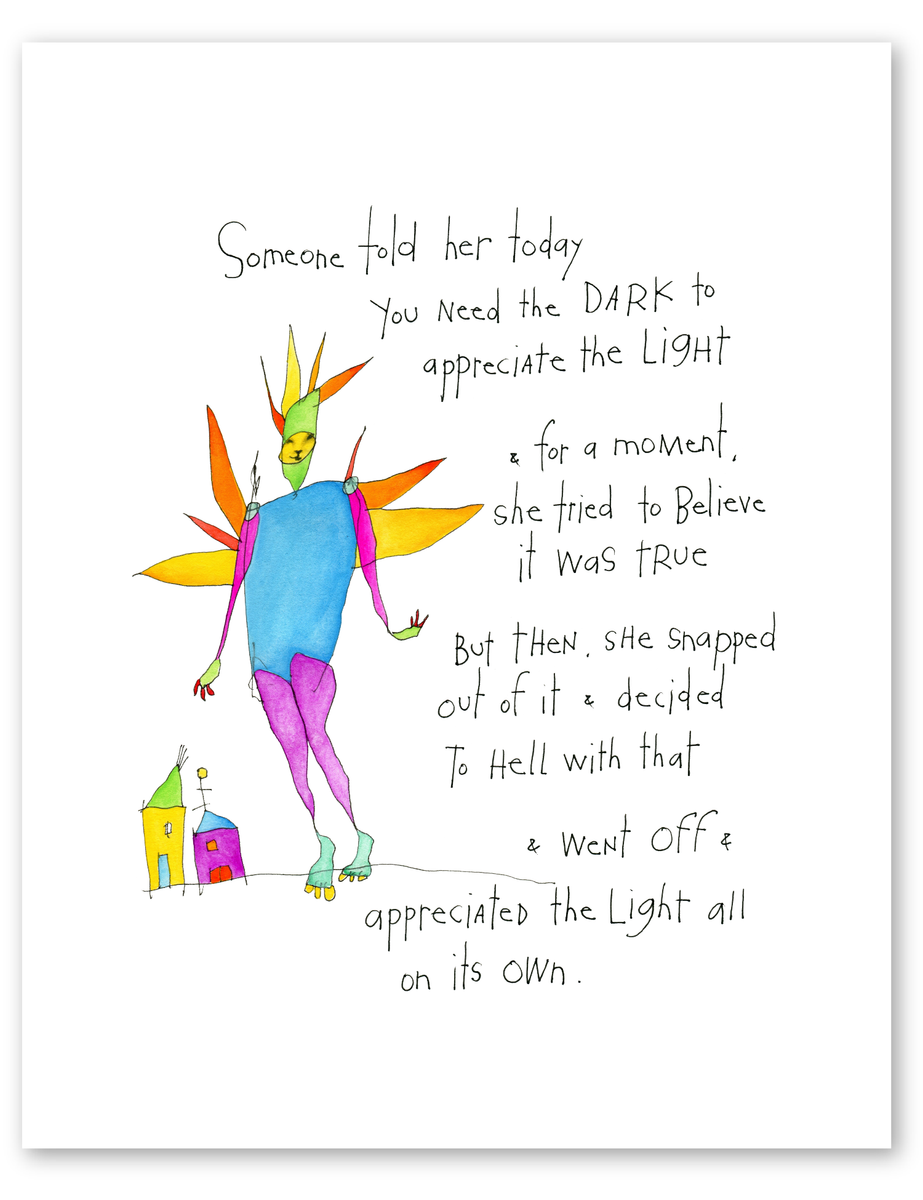 Someone told her today
You Need the DARK to
appreciAte the LigHt
& for a moMent,
she tried to Believe
it was tRUe
But tHeN, sHe snapped
out of it & decided
To Hell with that
& weNt OFF &
appreciAteD the Light all
on its OWN.